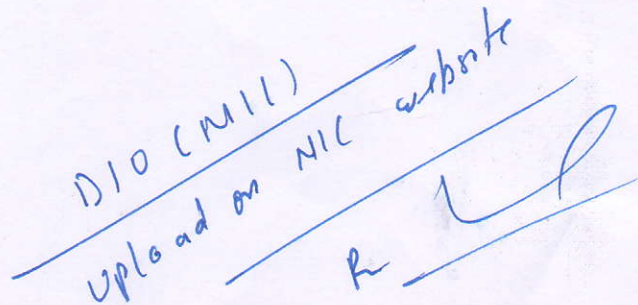 DIO (NIC)
Upload on NIC website